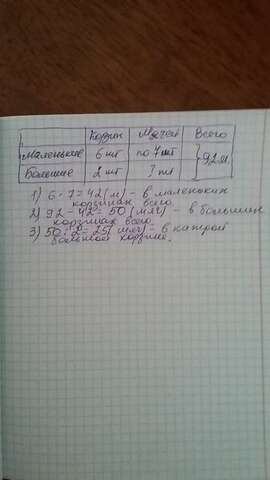 Корзин Мячей Всего
Маленькие 6 шт по 7 шт } 92 м.
Большие 2 шт ? шт
1) 6 · 7 = 42 (м) - в маленьких
корзинах всего.
2) 92 - 42 = 50 (мяч) - в больших
корзинах всего.
3) 50 : 2 = 25 (мяч) - в каждой
большой корзине.